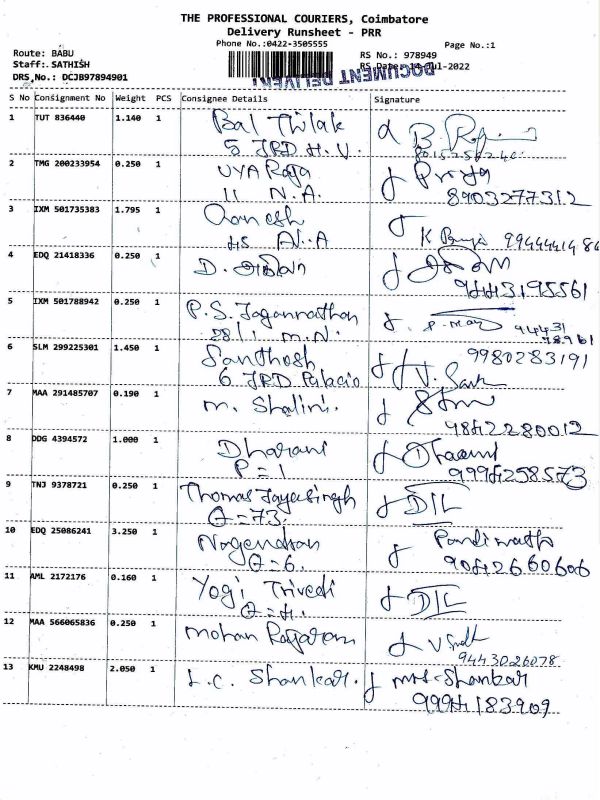 THE PROFESSIONAL COURIERS, Coimbatore
Delivery Runsheet - PRR
Phone No.:0422-3505555
Page No.:1
Route: BABU
Staff: SATHISH
DRS No.: DCJB97894901
RS No.: 978949
RS Date: 14-Jul-2022
DOCUMENT DELIVERY
S No Consignment No Weight PCS Consignee Details Signature
1 TUT 836440 1.140 1 Bal Thilak
5 JRD H.V.
2 TMG 200233954 0.250 1 UYA Raja Priya
11 N.A. 8903277312
3 IXM 501735383 1.795 1 Ganesh
A.A K
4 EDQ 21418336 0.250 1 D.
9443195561
5 IXM 501788942 0.250 1 P.S. Jagannathan
28/1 M.N.
6 SLM 299225301 1.450 1 Santhosh 9980283191
6 JRD Palacio
7 MAA 291485707 0.190 1 M. Shalini.
9842280012
8 DDG 4394572 1.000 1 Dharani Dharani
P=1 9994258573
9 TNJ 9378721 0.250 1 Thomas Jayasingh DIL
=73.
10 EDQ 25086241 3.250 1 Nagendran
=6. 9042660606
11 AML 2172176 0.160 1 Yogi Trivedi DIL
=4.
12 MAA 566065836 0.250 1 Mohan Rajaram
9443026078
13 KMU 2248498 2.050 1 L.C. Shankar. Mrs. Shankar
9994183909